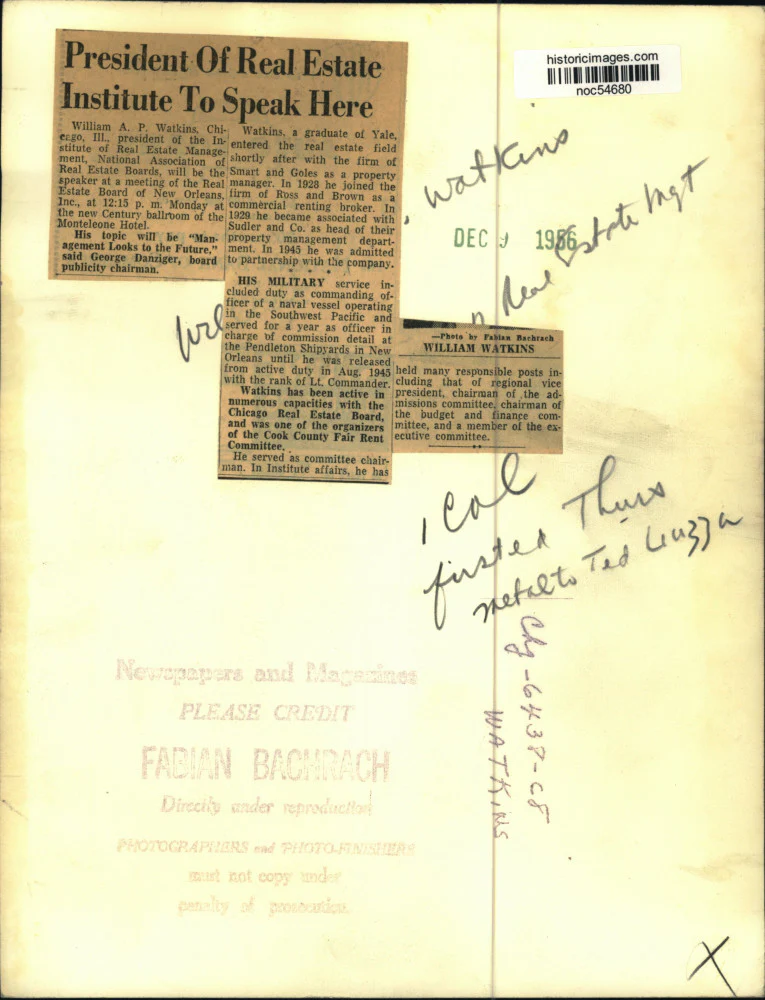 President Of Real Estate
Institute To Speak Here
William A. P. Watkins, Chi-
cago, Ill., president of the In-
stitute of Real Estate Manage-
ment, National Association of
Real Estate Boards, will be the
speaker at a meeting of the Real
Estate Board of New Orleans,
Inc., at 12:15 p. m. Monday at
the new Century ballroom of the
Monteleone Hotel.
His topic will be "Man-
agement Looks to the Future,"
said George Danziger, board
publicity chairman.
Watkins, a graduate of Yale,
entered the real estate field
shortly after with the firm of
Smart and Goles as a property
manager. In 1928 he joined the
firm of Ross and Brown as a
commercial renting broker. In
1929 he became associated with
Sudler and Co. as head of their
property management depart-
ment. In 1945 he was admitted
to partnership with the company.
* * *
HIS MILITARY service in-
cluded duty as commanding of-
ficer of a naval vessel operating
in the Southwest Pacific and
served for a year as officer in
charge of commission detail at
the Pendleton Shipyards in New
Orleans until he was released
from active duty in Aug. 1945
with the rank of Lt. Commander.
Watkins has been active in
numerous capacities with the
Chicago Real Estate Board,
and was one of the organizers
of the Cook County Fair Rent
Committee.
He served as committee chair-
man. In Institute affairs, he has
—Photo by Fabian Bachrach
WILLIAM WATKINS
held many responsible posts in-
cluding that of regional vice
president, chairman of the ad-
missions committee, chairman of
the budget and finance com-
mittee, and a member of the ex-
ecutive committee.
historicimages.com
noc54680
Watkins
DEC 9 1956
Real Estate Mgt
1 Col
Thurs
metal to Ted Liuzza
Chg-6438-C8
WATKINS
Newspapers and Magazines
PLEASE CREDIT
FABIAN BACHRACH
Directly under reproduction
PHOTOGRAPHERS and PHOTO-FINISHERS
must not copy under
penalty of prosecution.
X